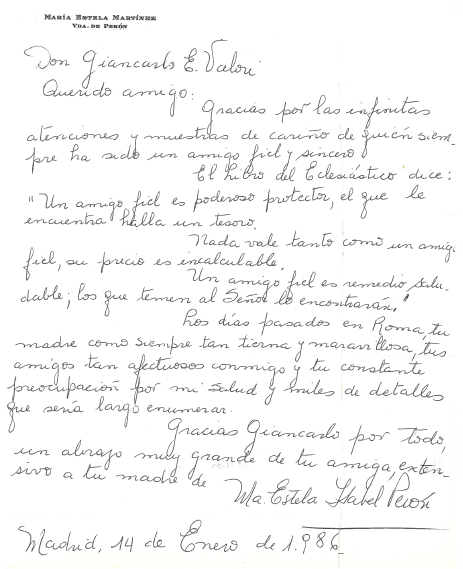 MARÍA ESTELA MARTÍNEZ
VDA. DE PERÓN
Don Giancarlo E. Valori
Querido amigo:
Gracias por las infinitas
atenciones y muestras de cariño de quién siem-
pre ha sido un amigo fiel y sincero
El libro del Eclesiástico dice:
"Un amigo fiel es poderoso protector, el que le
encuentra halla un tesoro.
Nada vale tanto como un amigo
fiel, su precio es incalculable.
Un amigo fiel es remedio salu-
dable; los que temen al Señor lo encontrarán."
Los días pasados en Roma, tu
madre como siempre tan tierna y maravillosa, tus
amigos tan afectuosos conmigo y tu constante
preocupación por mi salud y miles de detalles
que sería largo enumerar.
Gracias Giancarlo por todo,
un abrazo muy grande de tu amiga, exten-
sivo a tu madre de
Ma. Estela Isabel Perón
Madrid, 14 de Enero de 1.986